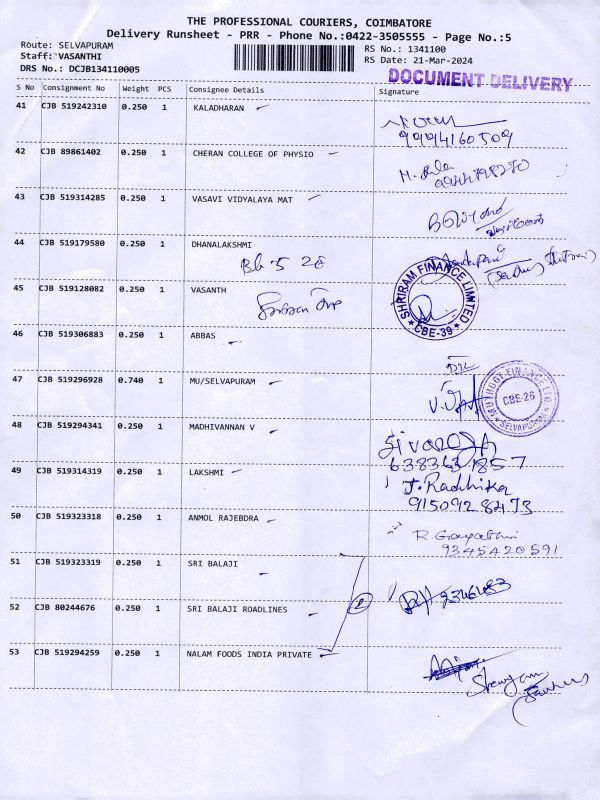 THE PROFESSIONAL COURIERS, COIMBATORE
Delivery Runsheet - PRR - Phone No.:0422-3505555 - Page No.:5
Route: SELVAPURAM
RS No.: 1341100
Staff: VASANTHI
RS Date: 21-Mar-2024
DRS No.: DCJB134110005
DOCUMENT DELIVERY
S No Consignment No Weight PCS Consignee Details Signature
41 CJB 519242310 0.250 1 KALADHARAN
9994160509
42 CJB 89861402 0.250 1 CHERAN COLLEGE OF PHYSIO
43 CJB 519314285 0.250 1 VASAVI VIDYALAYA MAT
44 CJB 519179580 0.250 1 DHANALAKSHMI
45 CJB 519128082 0.250 1 VASANTH
SHRIRAM FINANCE LIMITED
CBE-39
46 CJB 519306883 0.250 1 ABBAS
47 CJB 519296928 0.740 1 MU/SELVAPURAM
MUTHOOT FINANCE LTD
CBE-26
SELVAPURAM
48 CJB 519294341 0.250 1 MADHIVANNAN V
49 CJB 519314319 0.250 1 LAKSHMI
J. Radhika
9150928473
50 CJB 519323318 0.250 1 ANMOL RAJEBDRA
R Gayathri
9345420591
51 CJB 519323319 0.250 1 SRI BALAJI
52 CJB 80244676 0.250 1 SRI BALAJI ROADLINES
2
53 CJB 519294259 0.250 1 NALAM FOODS INDIA PRIVATE